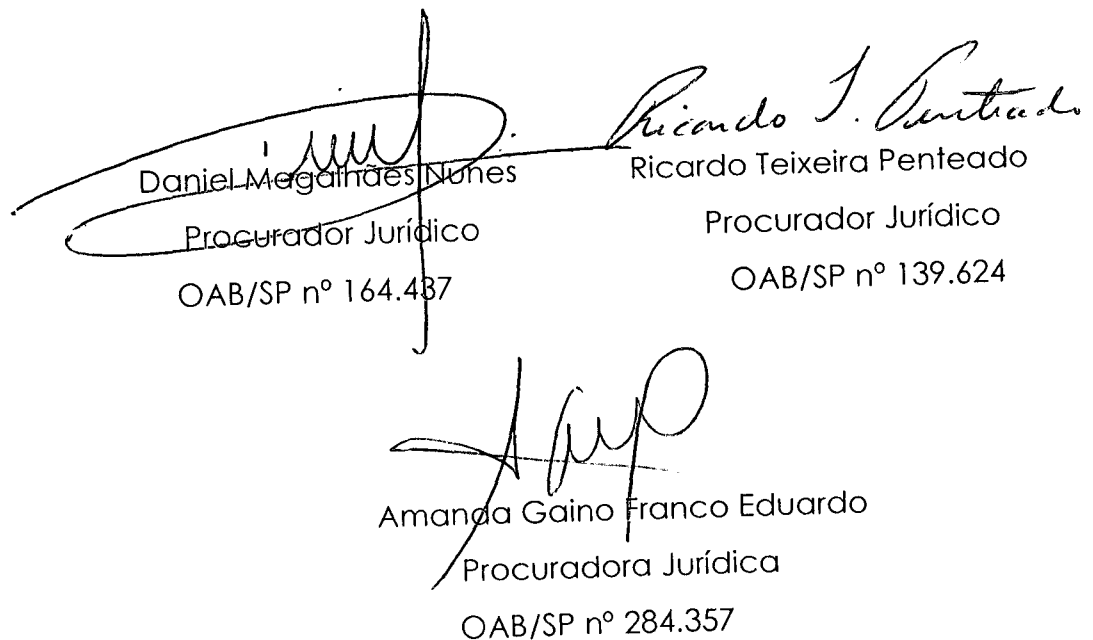 Ricardo T. Penteado
Daniel Magalhães Nunes
Procurador Jurídico
OAB/SP nº 164.437
Ricardo Teixeira Penteado
Procurador Jurídico
OAB/SP nº 139.624
Amanda Gaino Franco Eduardo
Procuradora Jurídica
OAB/SP nº 284.357